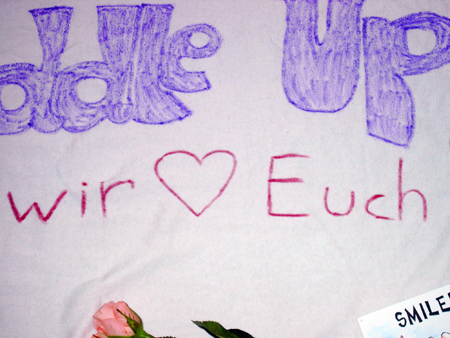 ddle Up
wir ♡ Euch
SMILE